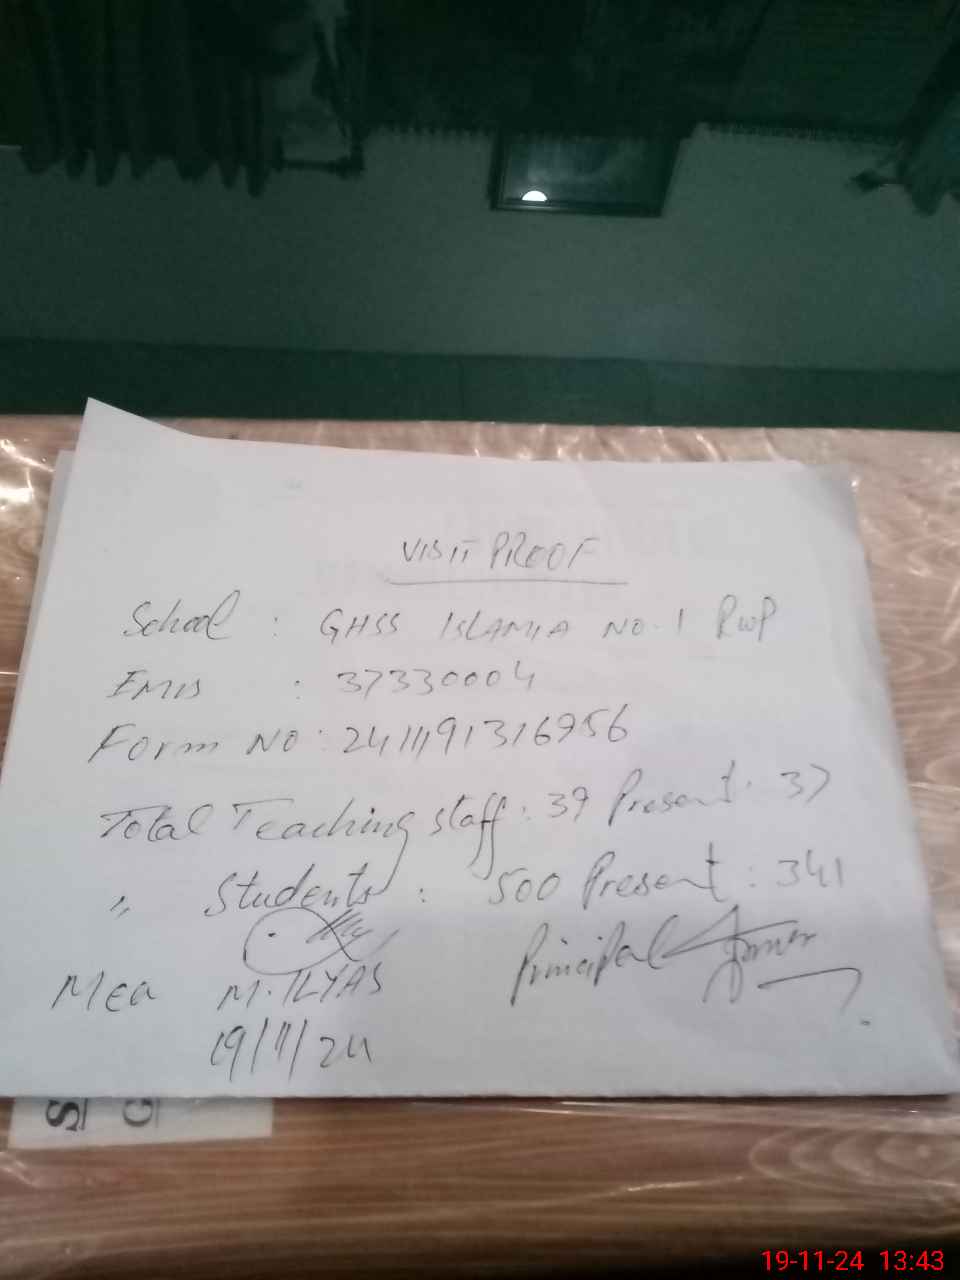 VISIT PROOF
School : GHSS ISLAMIA NO.1 RWP
EMIS : 37330004
Form NO : 2411191316956
Total Teaching staff : 39 Present : 37
〃 Students : 500 Present : 341
Principal
Mea M. ILYAS
19/11/24
S
G
19-11-24 13:43